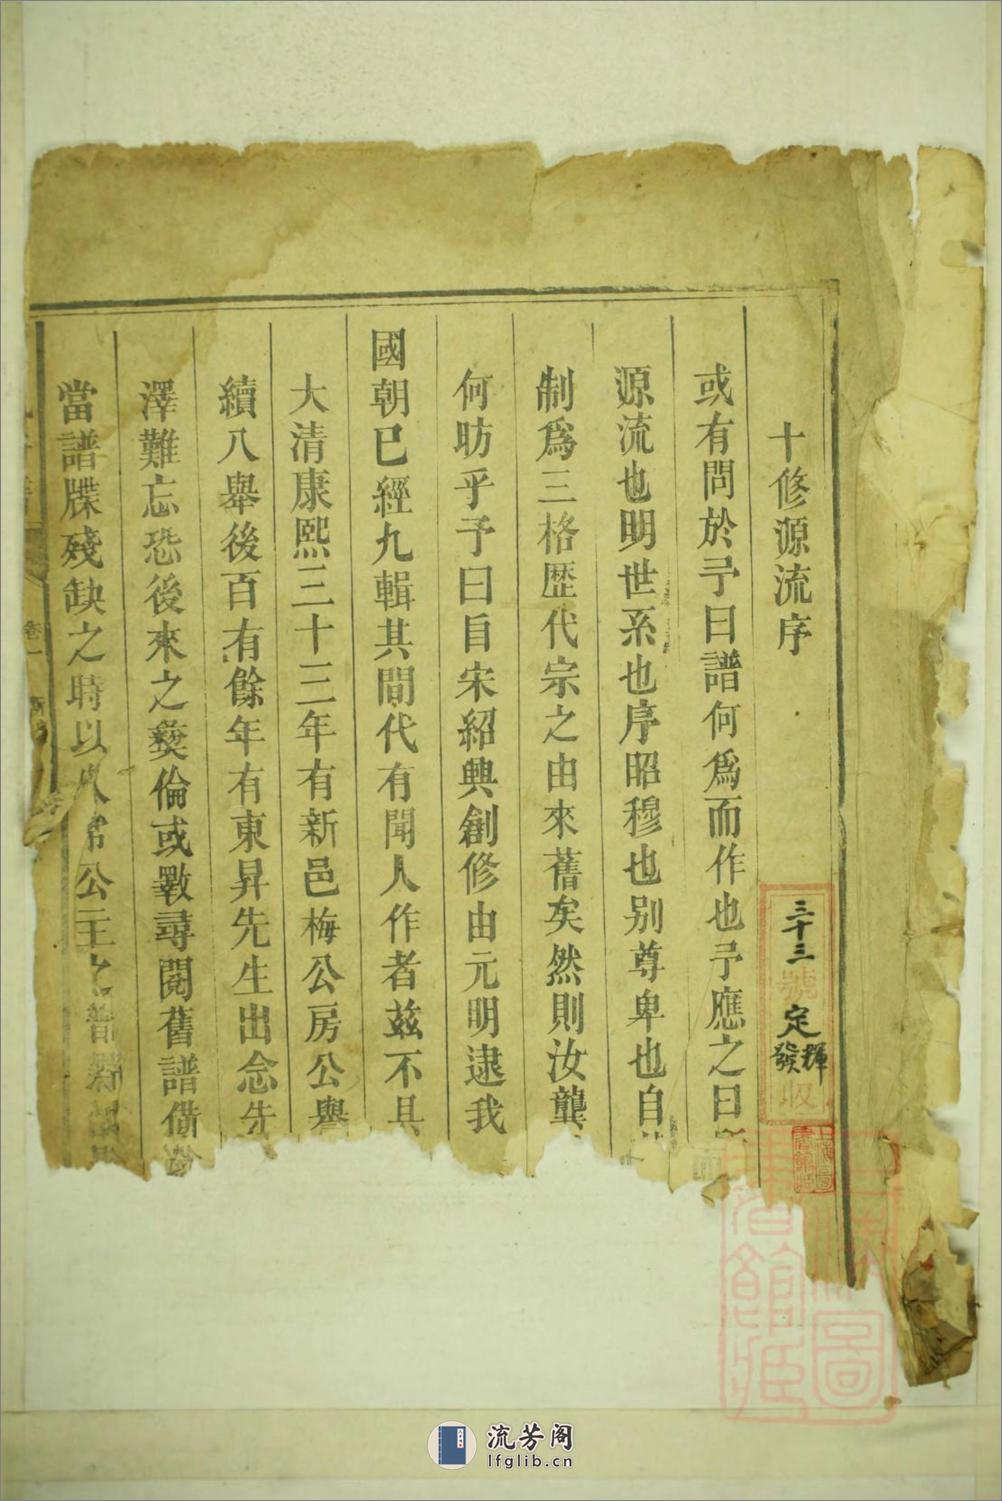 十修源流序
或有問於予曰譜何爲而作也予應之曰
源流也明世系也序昭穆也别尊卑也自
制爲三格歴代宗之由來舊矣然則汝龔
何昉乎予曰自宋紹興創修由元明逮我
國朝已經九輯其間代有聞人作者兹不具
大清康熙三十三年有新邑梅公房公舉
續八舉後百有餘年有東昇先生出念先
澤難忘恐後來之彝倫或斁尋閱舊譜備
當譜牒殘缺之時以公主之
三十三號
定發輝
收
卷一
上海圖書館藏
流芳阁
lfglib.cn